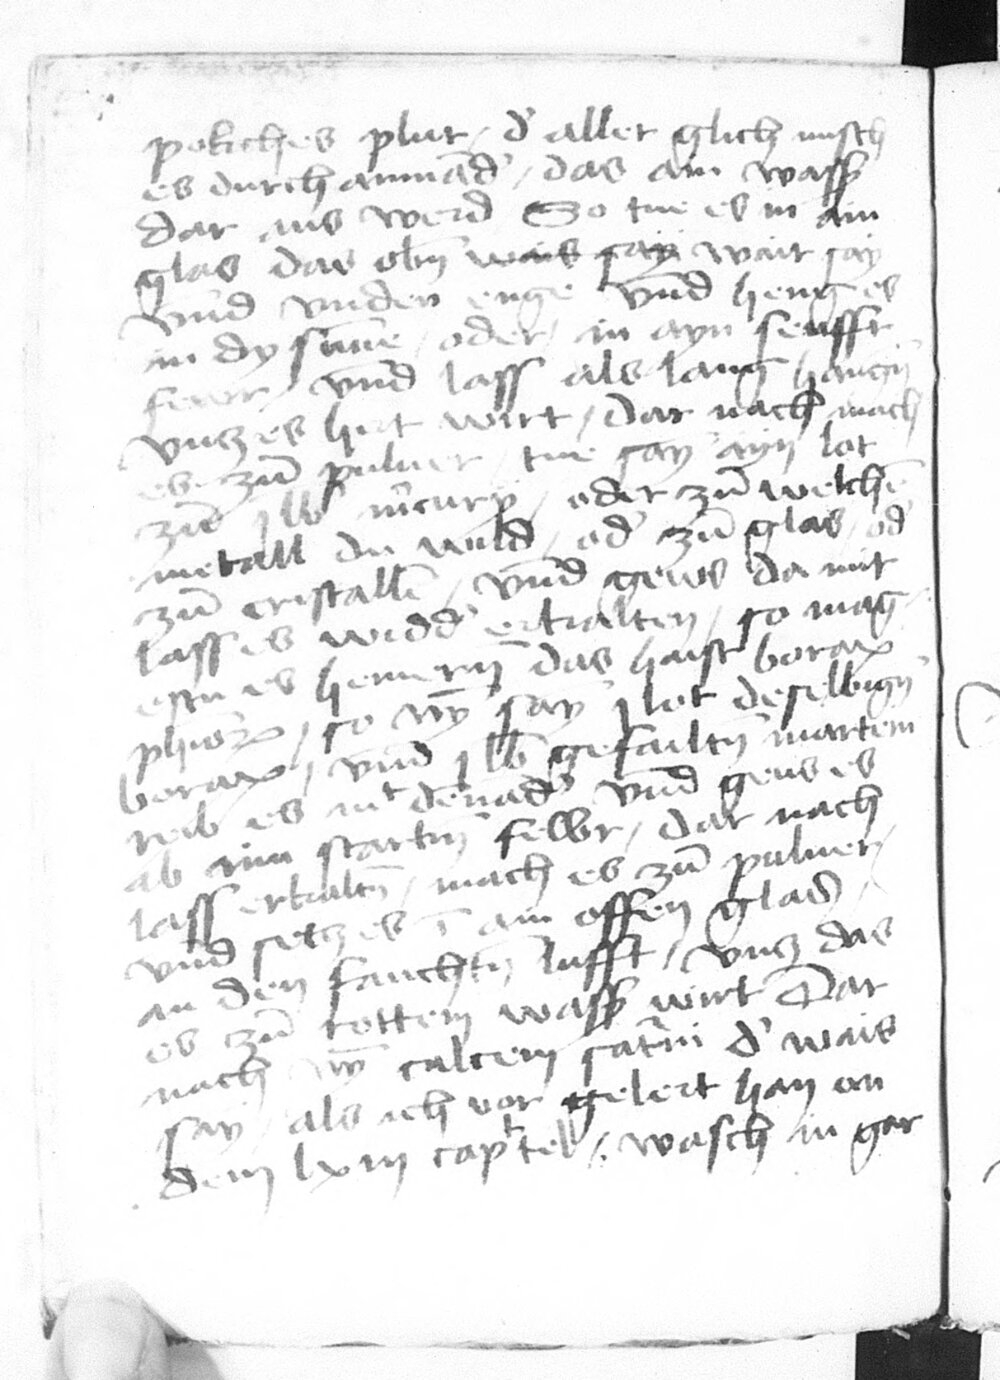 pokiches plut / d' aller glich misch
es durch ainnād' / das ain wass'
dar aus werd So tue es in ain
glas das obn̄ wais say wait say
vnd vnden enge vnd heng es
in dy sunne / oder / in ayn senfft
fewr / vnd lass als lang hangn̄
vncz es hert wirt / Dar nach mach
es zū puluer / tue say ayn lot
zū j lb m̄cury / oder zū welchē
metall du wild / od' zū glas / od'
zū cristallē / vnd geus da mit
lass es widd' erkalten / so mag
estu es hemern̄ das haist borax
so nȳ say j lot deselbign̄
borax / vnd j lb gefailtn̄ martem
reib es mit denād' vnd geus es
ab inn starckn̄ fewr / dar nach
lass erkaltn̄ / mach es zū puluer /
vnd secz es ī ain offen glas /
an den fauchtn̄ lufft / vncz das
es zū rottem wass' wirt Dar
nach nȳ calcem satrni d' wais
say / als ich vor gelert han on
dem lxiij capitel / wasch in gar